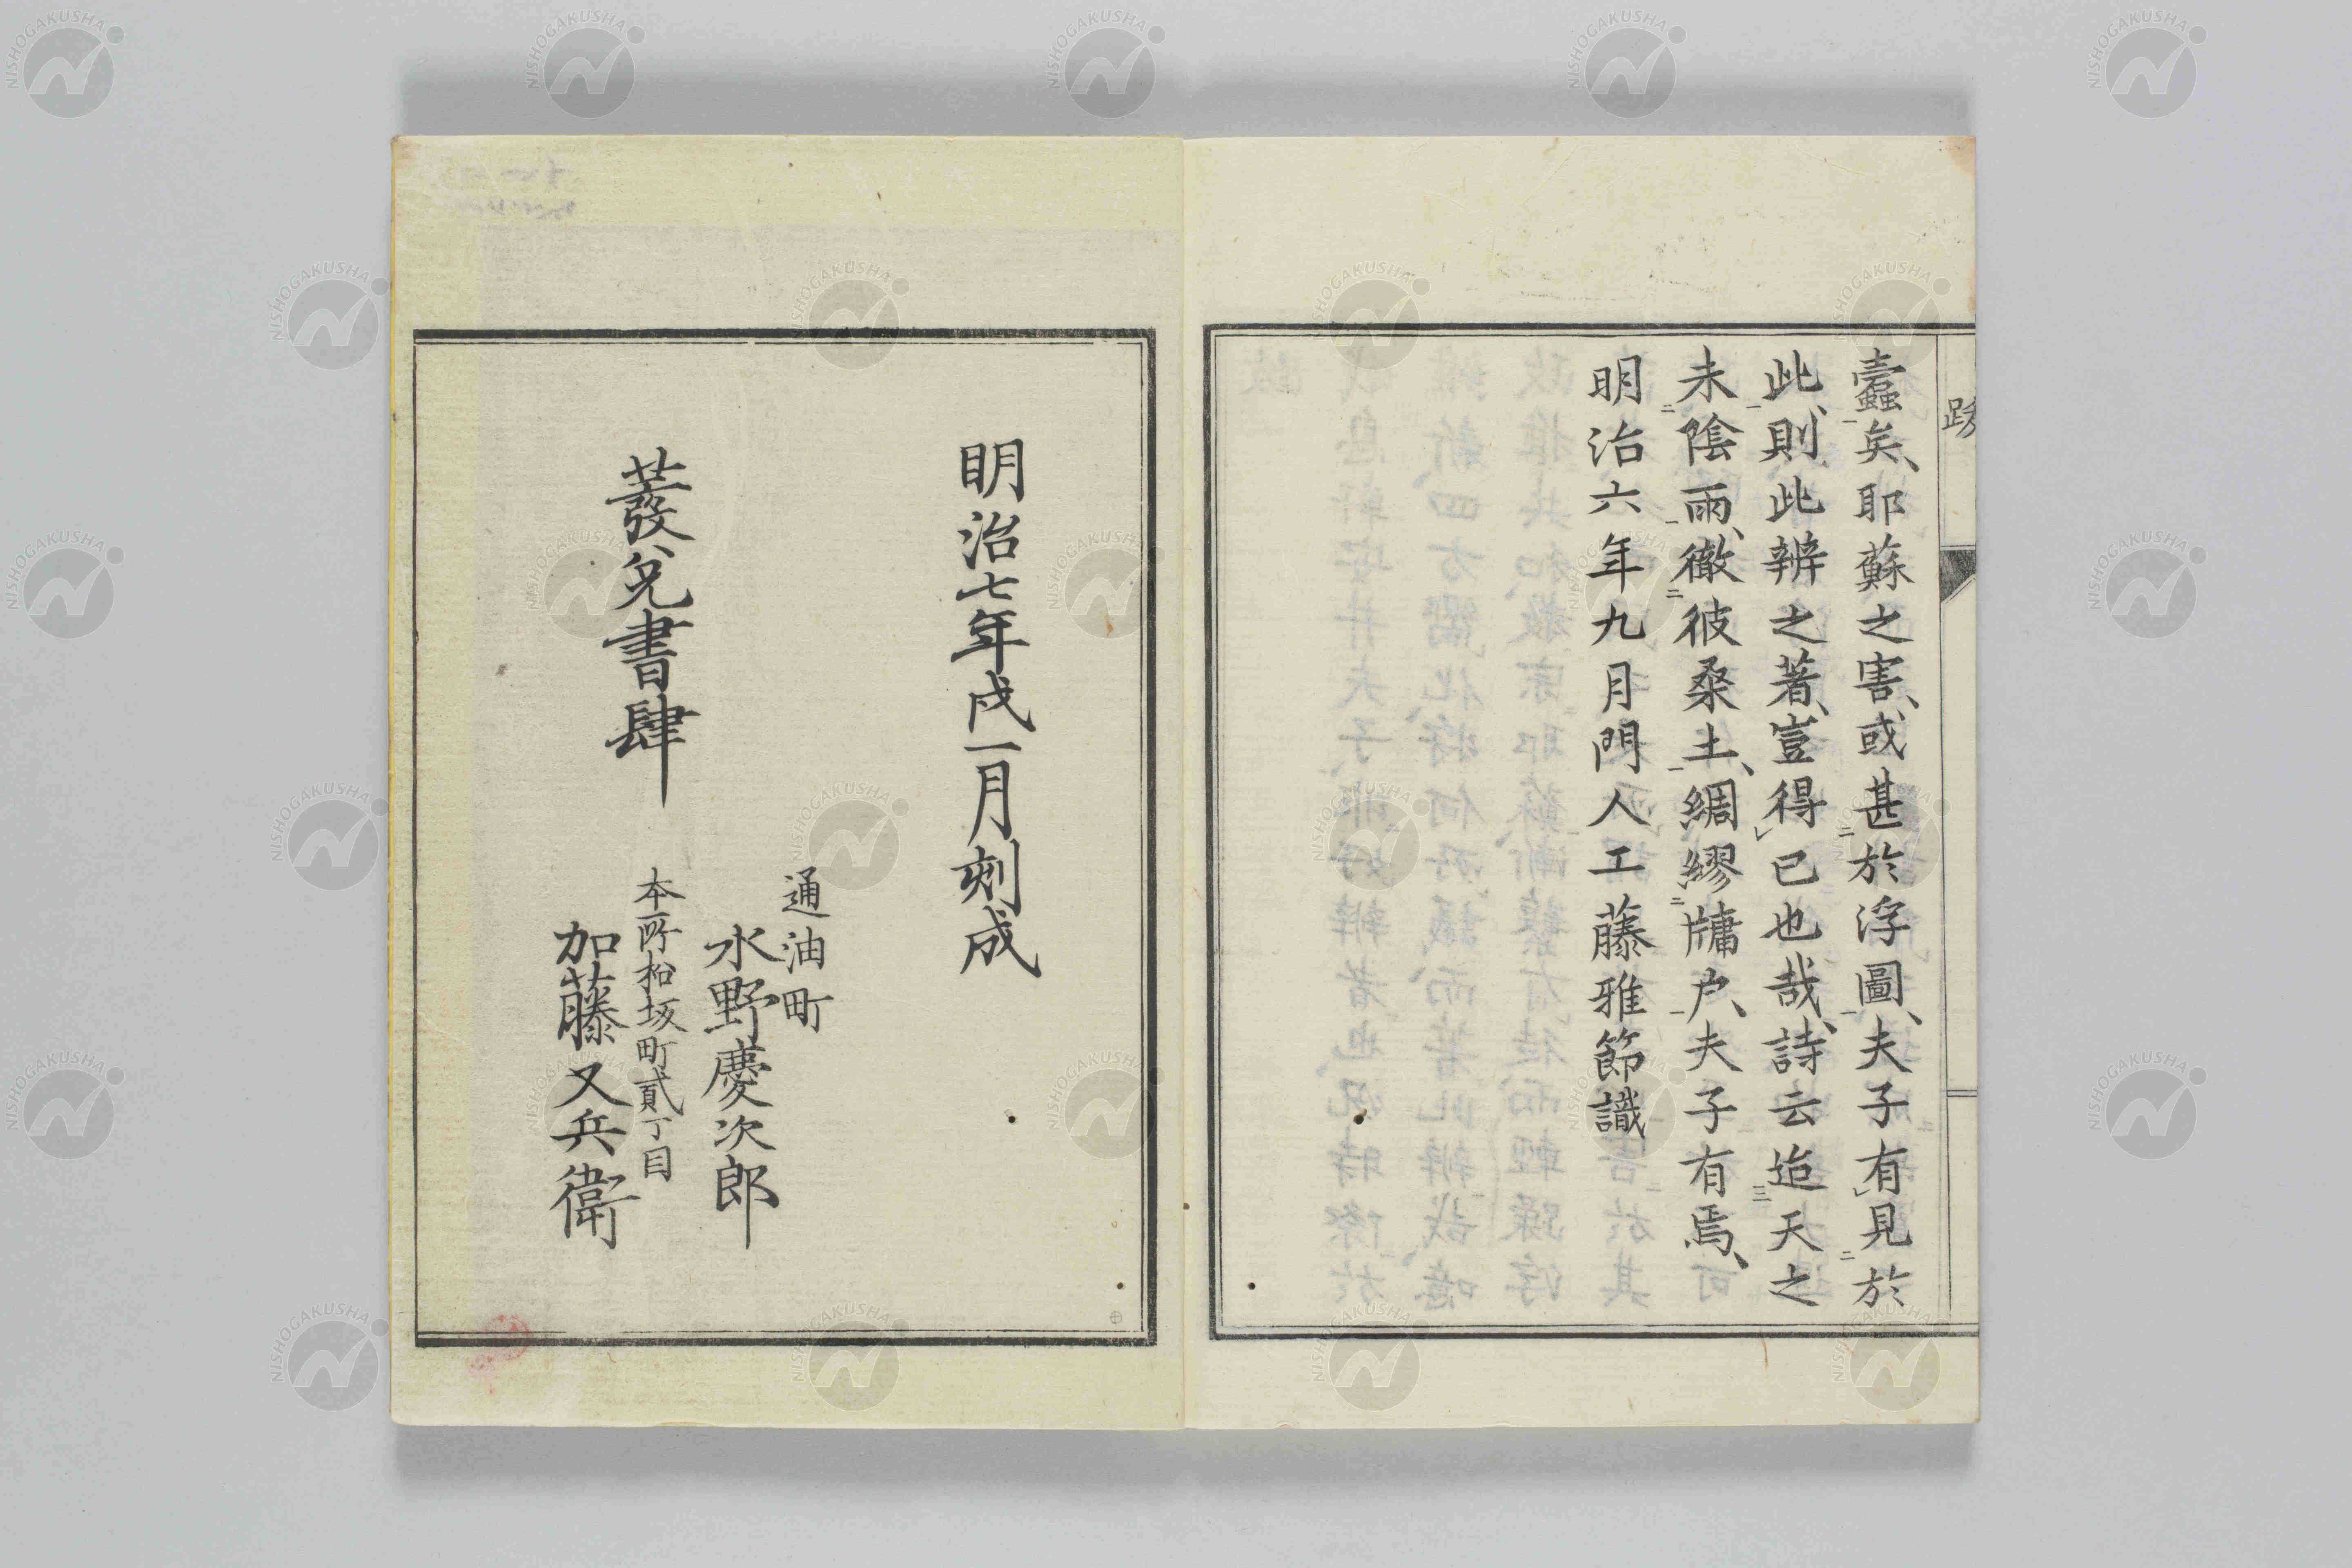 跡
蠹矣、耶蘇之害、或甚二於浮圖一、夫子有レ見二於
此一、則此辨之著、豈得レ已也哉、詩云迨三天之
未二陰雨一、徹二彼桑土一、綢二繆牗戶一、夫子有焉、
明治六年九月門人工藤雅節識
明治七年戌一月刻成
發兌書肆
通油町
水野慶次郎
本所松坂町貳丁目
加藤又兵衛
NISHOGAKUSHA